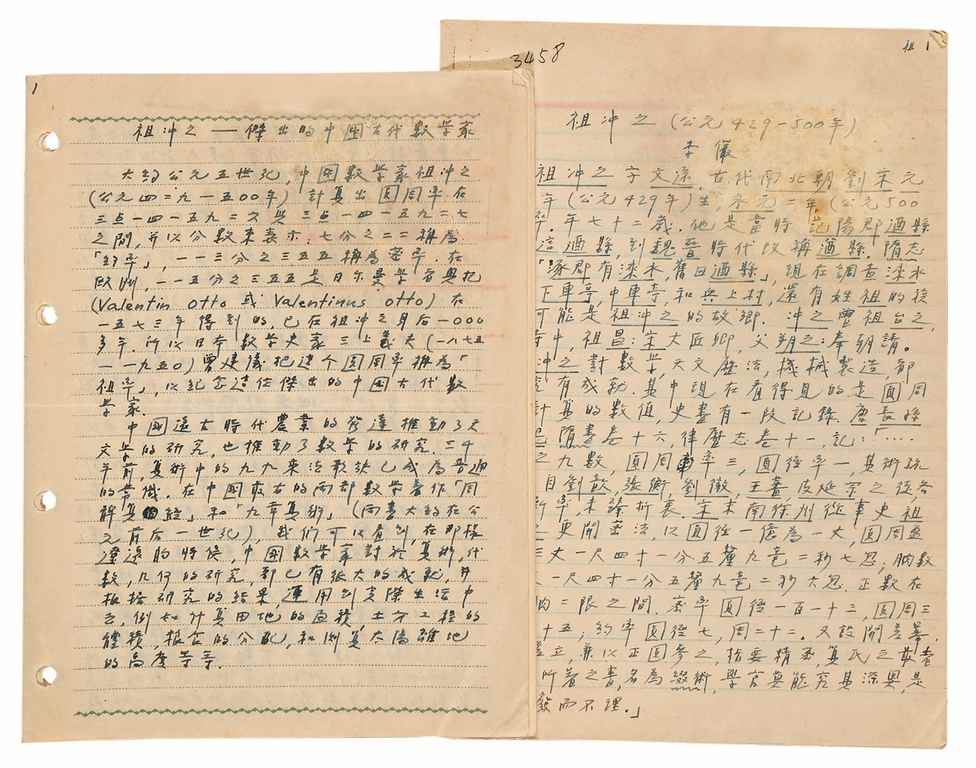 1
祖冲之 — 傑出的中國古代數學家
大約公元五世紀,中國數學家祖冲之
(公元四二九—五00年) 計算出圓周率在
三点一四一五九二六與三点一四一五九二七
之間,並以分數來表示.七分之二二稱為
「約率」,一一三分之三五五稱為密率.在
欧洲,一一三分之三五五是日尔曼學者奧托
(Valentin otto 或 Valentinus otto) 在
一五七三年得到的,已在祖冲之月后一000
多年.所以日本數學史家三上義夫(一八七五
—一九五0)曾建儀把這个圓周率稱為「
祖率」,以紀念這位傑出的中国古代數
學家.
中國遠古時代農業的發達推動了天
文學的研究,也推動了數學的研究.三千
年前,算術中的九九乘法歌訣已成為普通
的常識.在中國最古的两部數學著作「周
髀算經」和「九章算術」(両書大約在公
元前后一世纪),我們可以看到,在那樣
遼遠的時候,中國數學家對於算術,代
數,几何的研究,都已有很大的成就,并
根据研究的結果,運用到实際生活中
去,例如计算田地的面積,土方工程的
體積,粮食的分配,和測算太陽離地
的高度等等.
3458
祖 1
祖冲之 (公元429-500年)
李儼
祖冲之字文遠.古代南北朝劉宋元
年(公元429年)生,永元二年(公元500
年.年七十二歲.他是當時范陽郡遒縣
這遒縣,到魏晉時代改稱遒縣.隋志
「涿郡有淶水,舊曰遒縣」,現在調查淶水
下車亭,中車亭,和兵上村,還有姓祖的後
可能是祖冲之的故鄉.冲之曾祖台之,
侍中,祖昌:宋大匠卿,父朔之:奉朝請。
冲之對數學,天文曆法,機械製造,都
有成就.其中現在看得見的是圓周
計算的數值,史書有一段記錄.唐長孫
忌隋書卷十六,律歷志卷十一,記:「....
之九數,圓周率三,圓徑率一,其術疏
自劉歆,張衡,劉徽,王蕃,皮延宗之徒各
新率,未臻折衷.宋末南徐州從事史祖
之更開密法,以圓徑一億為一丈,圓周盈
三丈一尺四寸一分五釐九毫二秒七忽,朒數
一尺四寸一分五釐九毫二秒六忽.正數在
朒二限之間.密率圓徑一百一十三,圓周三
十五;約率圓徑七,周二十二。又設開差冪.
差立,兼以正圓參之,指要精密,算氏之最者
所著之書,名為綴術,學官莫能究其深奧,是
廢而不理.」